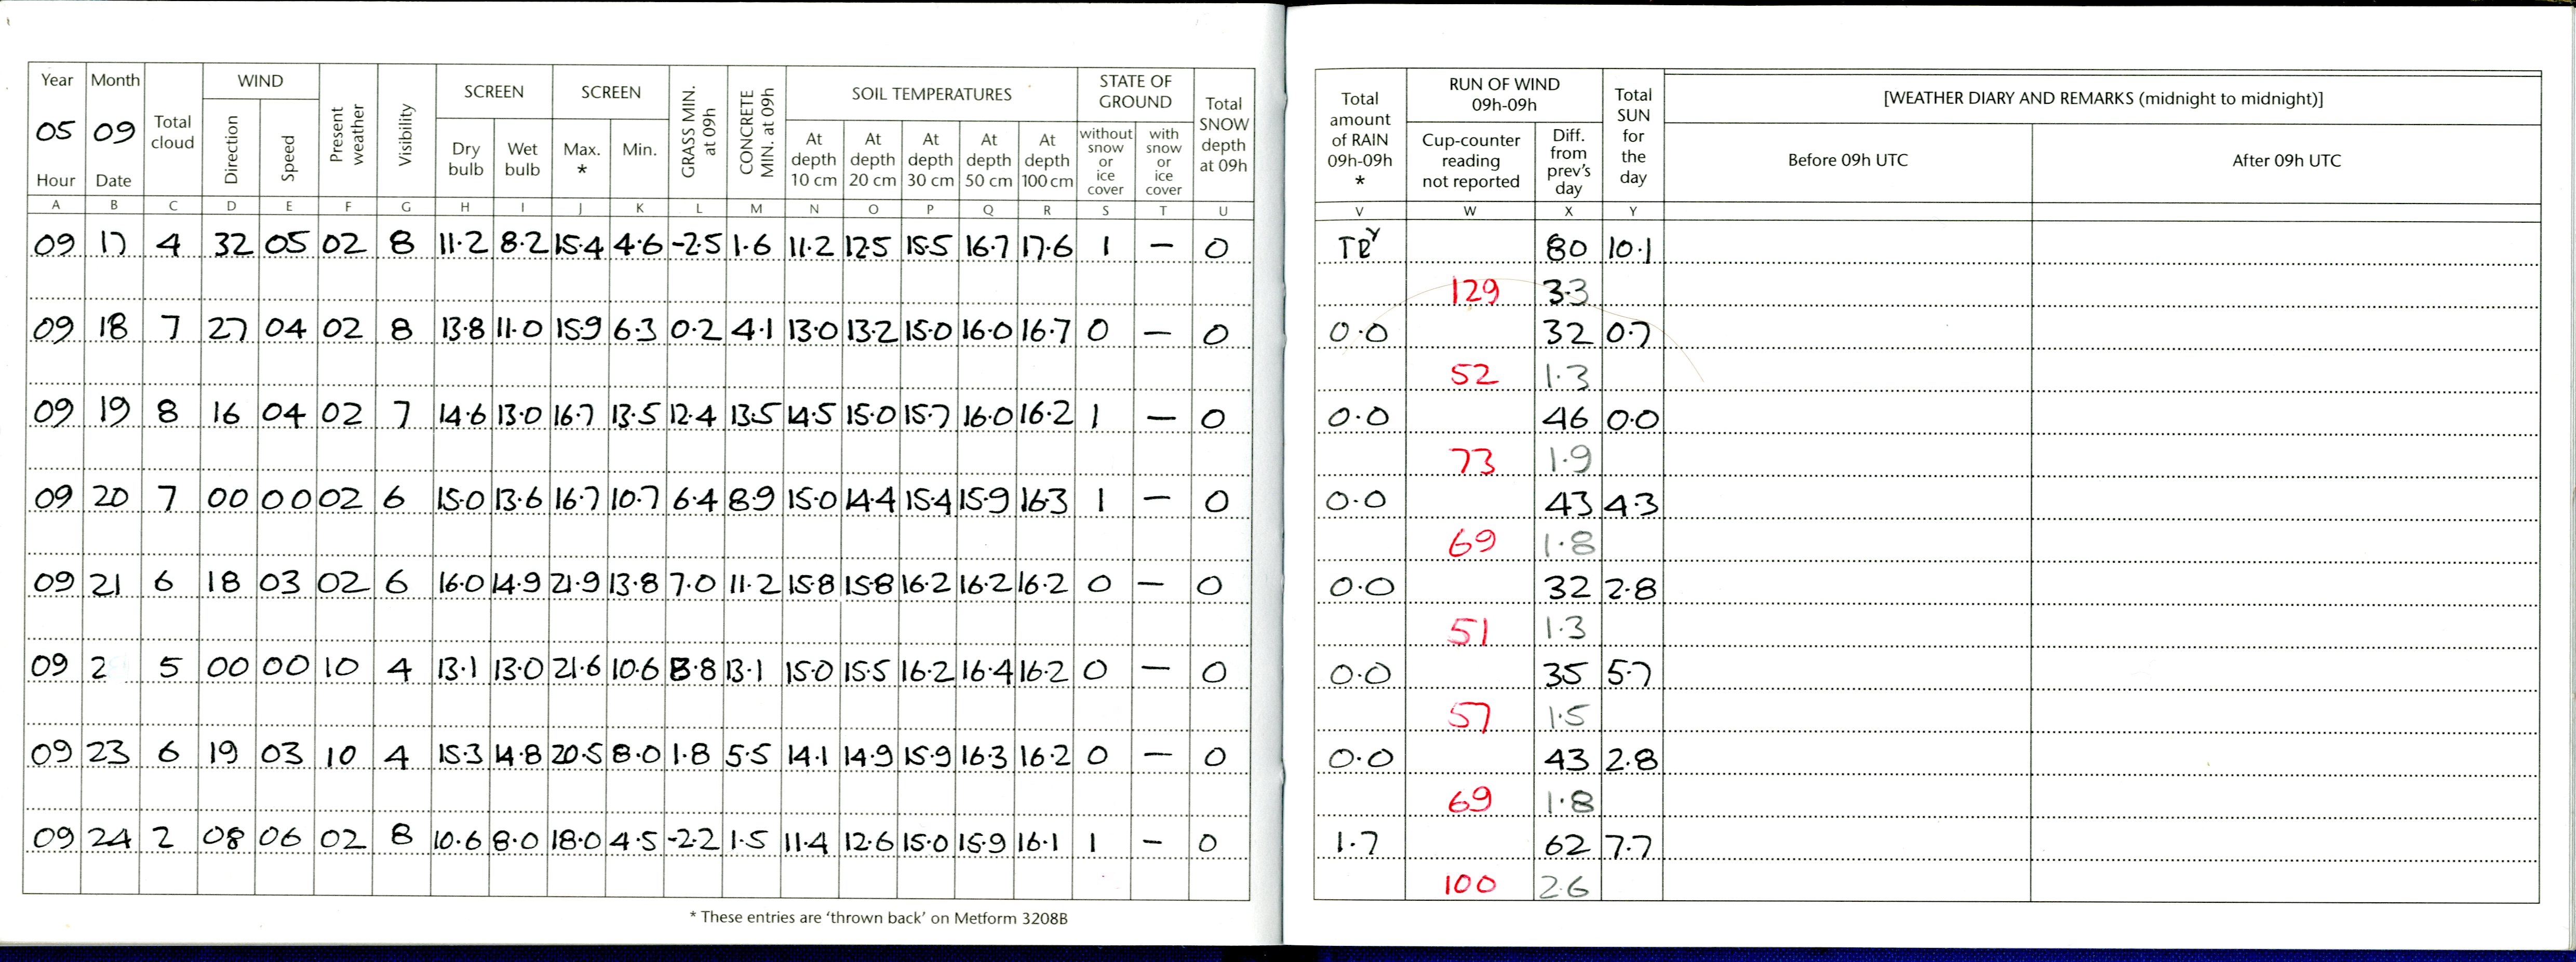 Year Month Total cloud WIND Present weather Visibility SCREEN SCREEN GRASS MIN. at 09h CONCRETE MIN. at 09h SOIL TEMPERATURES STATE OF GROUND Total SNOW depth at 09h
05 09 Direction Speed Dry bulb Wet bulb Max. * Min. At depth 10 cm At depth 20 cm At depth 30 cm At depth 50 cm At depth 100 cm without snow or ice cover with snow or ice cover
Hour Date
A B C D E F G H I J K L M N O P Q R S T U
09 17 4 32 05 02 8 11.2 8.2 15.4 4.6 -2.5 1.6 11.2 12.5 15.5 16.7 17.6 1 — 0
09 18 7 27 04 02 8 13.8 11.0 15.9 6.3 0.2 4.1 13.0 13.2 15.0 16.0 16.7 0 — 0
09 19 8 16 04 02 7 14.6 13.0 16.7 13.5 12.4 13.5 14.5 15.0 15.7 16.0 16.2 1 — 0
09 20 7 00 00 02 6 15.0 13.6 16.7 10.7 6.4 8.9 15.0 14.4 15.4 15.9 16.3 1 — 0
09 21 6 18 03 02 6 16.0 14.9 21.9 13.8 7.0 11.2 15.8 15.8 16.2 16.2 16.2 0 — 0
09 2 5 00 00 10 4 13.1 13.0 21.6 10.6 8.8 13.1 15.0 15.5 16.2 16.4 16.2 0 — 0
09 23 6 19 03 10 4 15.3 14.8 20.5 8.0 1.8 5.5 14.1 14.9 15.9 16.3 16.2 0 — 0
09 24 2 08 06 02 8 10.6 8.0 18.0 4.5 -2.2 1.5 11.4 12.6 15.0 15.9 16.1 1 — 0
* These entries are ‘thrown back’ on Metform 3208B
Total amount of RAIN 09h-09h * RUN OF WIND 09h-09h Total SUN for the day [WEATHER DIARY AND REMARKS (midnight to midnight)]
Cup-counter reading not reported Diff. from prev's day Before 09h UTC After 09h UTC
V W X Y
TRY 80 10.1
129 3.3
0.0 32 0.7
52 1.3
0.0 46 0.0
73 1.9
0.0 43 4.3
69 1.8
0.0 32 2.8
51 1.3
0.0 35 5.7
57 1.5
0.0 43 2.8
69 1.8
1.7 62 7.7
100 2.6